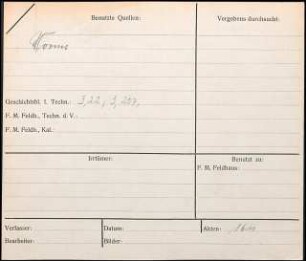 Benutzte Quellen:
Vergebens durchsucht:
Worms
Geschichtsbl. f. Techn.: 3,22; 3,237,
F. M. Feldh., Techn. d. V.:
F. M. Feldh., Kal.:
Irrtümer:
Benutzt zu:
F. M. Feldhaus:
Verfasser:
Datum:
Akten:
Bearbeiter:
Bilder: